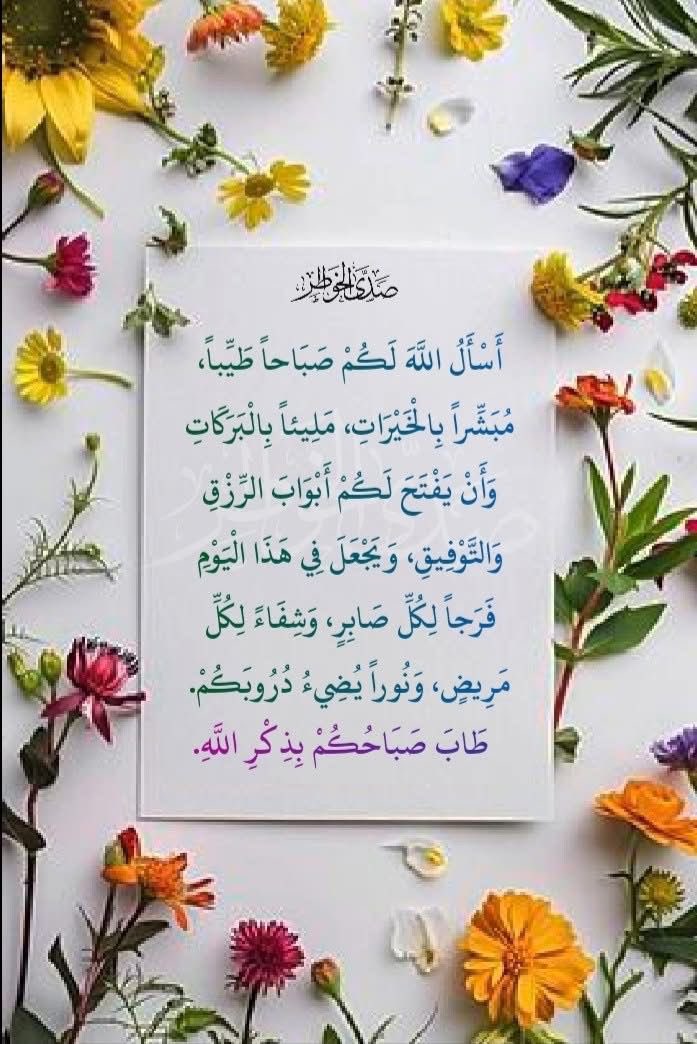 صَدَى الخَوَاطِر
أَسْأَلُ اللَّهَ لَكُمْ صَبَاحاً طَيِّباً،
مُبَشِّراً بِالْخَيْرَاتِ، مَلِيئاً بِالْبَرَكَاتِ
وَأَنْ يَفْتَحَ لَكُمْ أَبْوَابَ الرِّزْقِ
وَالتَّوْفِيقِ، وَيَجْعَلَ فِي هَذَا الْيَوْمِ
فَرَجاً لِكُلِّ صَابِرٍ، وَشِفَاءً لِكُلِّ
مَرِيضٍ، وَنُوراً يُضِيءُ دُرُوبَكُمْ.
طَابَ صَبَاحُكُمْ بِذِكْرِ اللَّهِ.